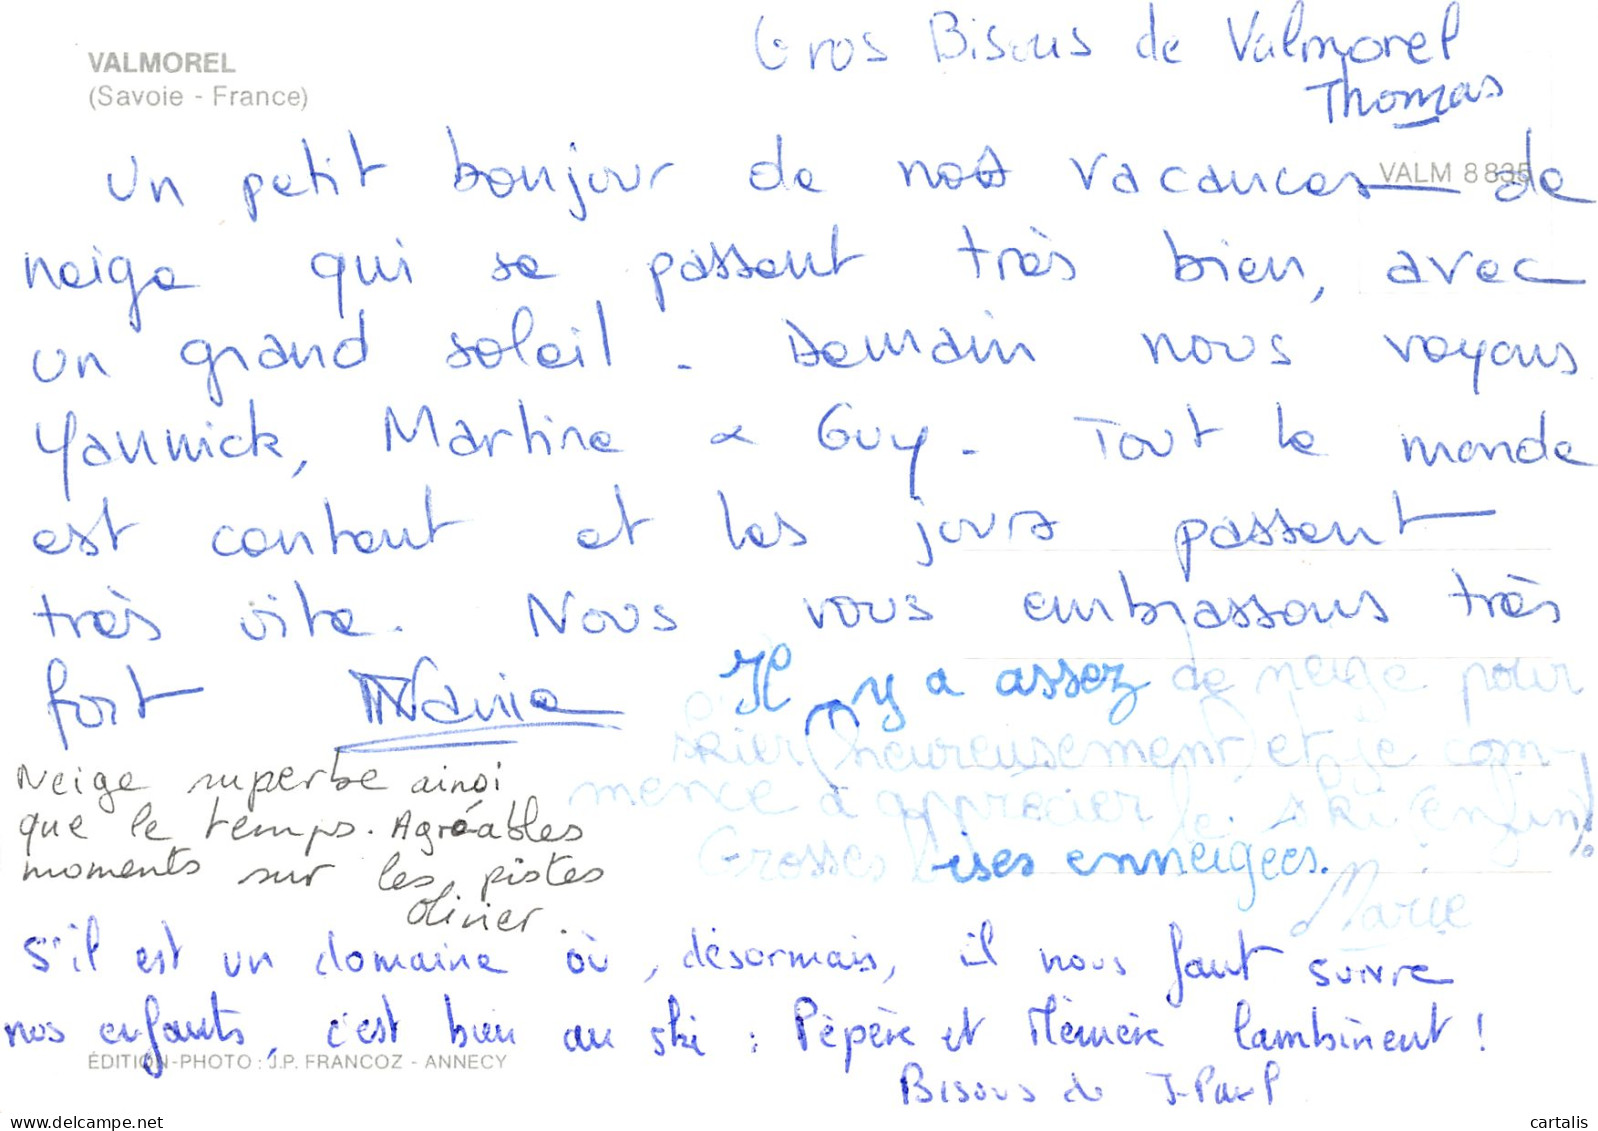 VALMOREL
(Savoie - France)
Gros Bisous de Valmorel
Thomas
VALM 8 835
Un petit bonjour de nos vacances de
neige qui se passent très bien, avec
un grand soleil. Demain nous voyons
Yannick, Martine & Guy. Tout le monde
est content et les jours passent
très vite. Nous vous embrassons très
fort
Il y a assez de neige pour
skier (heureusement) et je com-
mence à apprécier le ski (enfin)!
Grosses bises enneigées.
Marie
Neige superbe ainsi
que le temps. Agréables
moments sur les pistes
Olivier
S'il est un domaine où, désormais, il nous faut suivre
nos enfants, c'est bien au ski : Pépère et Mémère lambinent !
Bisous de J-Paul
ÉDITION-PHOTO : J.P. FRANCOZ - ANNECY
cartalis